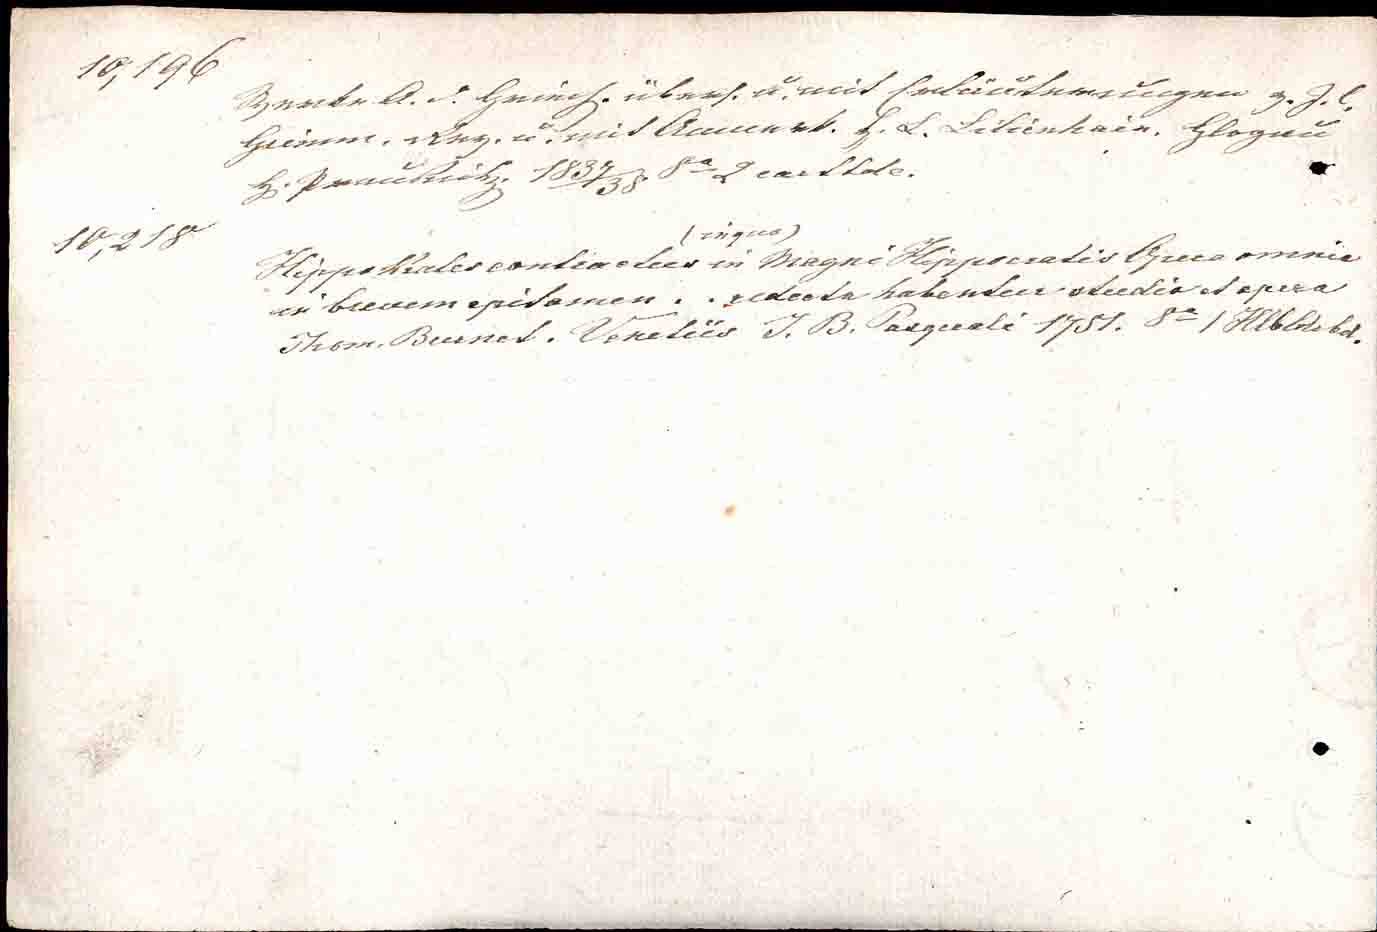 10,196
Werke A. d. Griech. übers. u. mit Erläuterungen v. J. C.
Grimm. Rev. u. mit Anmerk. v. L. Lilienhain. Glogau
H. Prausnitz. 1837/38 8° 2 cartbde.
10,218
(in quo)
Hippokrates contractus in Magni Hippocratis Opera omnia
in brevem epitomen . . redacta habentur studio et opera
Thom. Burnet. Venetiis J. B. Pasquali 1751. 8° 1 Hlbldrbd.